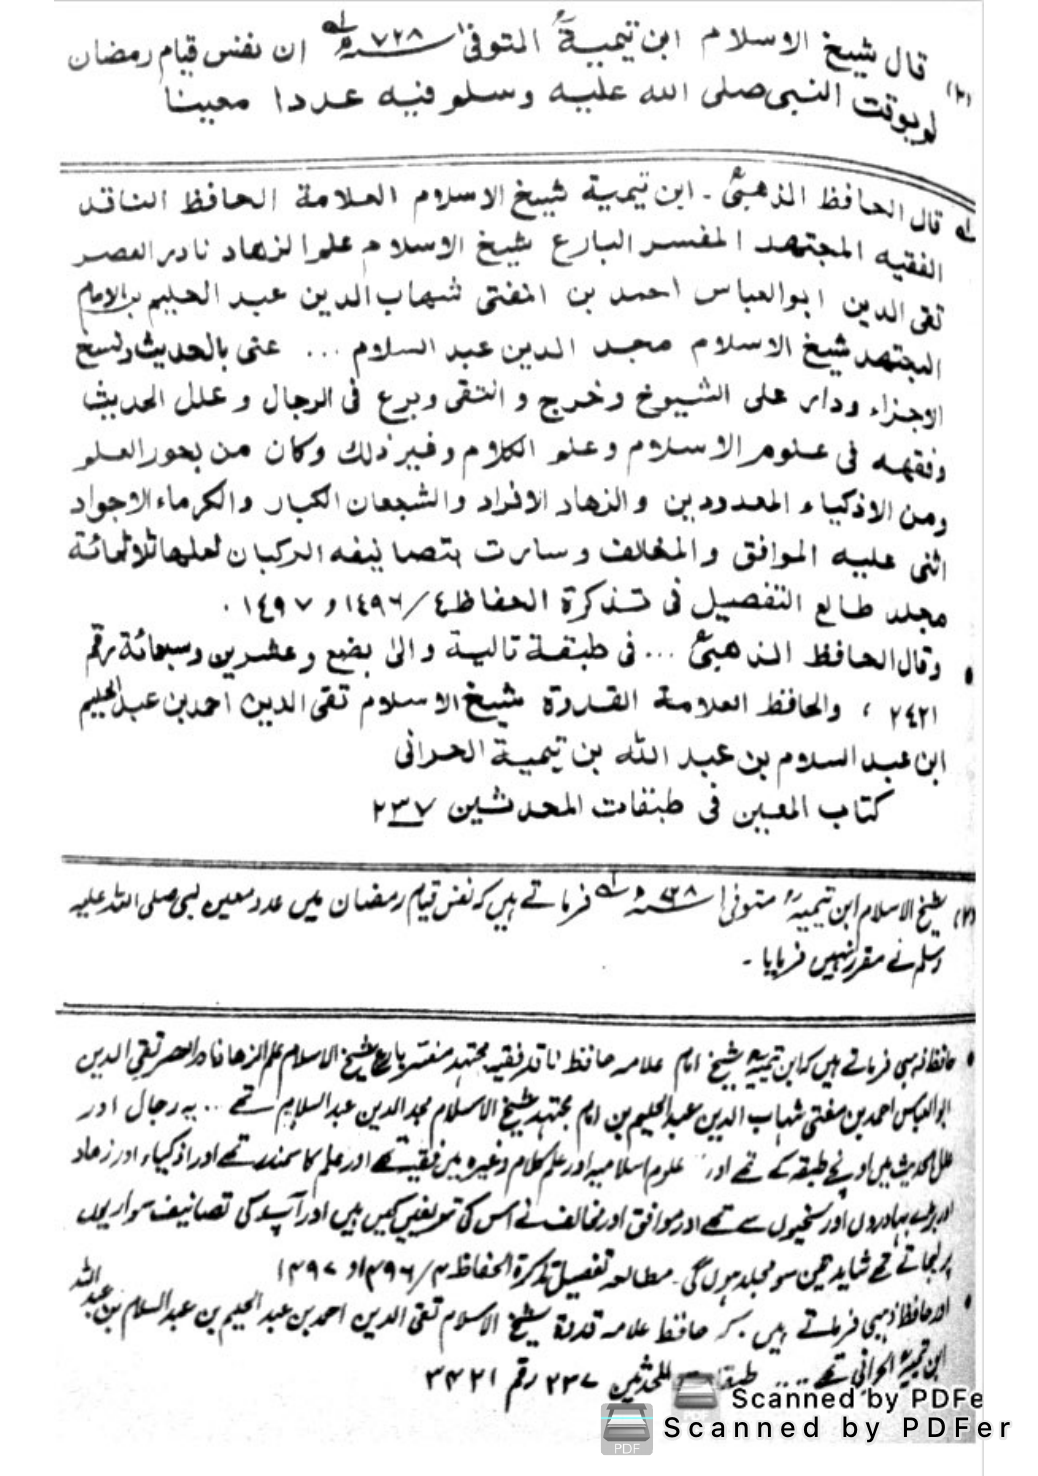 (۲) قال شيخ الاسلام ابن تيميةؒ المتوفى ۷۲۸ھ ان نفس قيام رمضان
لم يوقت النبى صلى الله عليه وسلم فيه عددا معينا
لہ قال الحافظ الذهبىؒ - ابن تيمية شيخ الاسلام العلامة الحافظ الناقد
الفقيه المجتهد المفسر البارع شيخ الاسلام علم الزهاد نادر العصر
تقى الدين ابوالعباس احمد بن المفتى شهاب الدين عبد الحليم بن الامام
المجتهد شيخ الاسلام مجد الدين عبد السلام ... عنى بالحديث ونسخ
الاجزاء ودار على الشيوخ وخرج و انتقى وبرع فى الرجال وعلل الحديث
وفقهه فى علوم الاسلام وعلم الكلام وغير ذلك وكان من بحور العلم
ومن الاذكياء المعدودين والزهاد الافراد والشجعان الكبار والكرماء الاجواد
اثنى عليه الموافق والمخالف وسارت بتصانيفه الركبان لعلها ثلاثمائة
مجلد طالع التفصيل فى تذكرة الحفاظ ٤/١٤٩٦ و ١٤٩٧ .
• وقال الحافظ الذهبىؒ ... فى طبقة تالية والى بضع وعشرين وسبعمائة رقم
٢٤٢١ ، والحافظ العلامة القدوة شيخ الاسلام تقى الدين احمد بن عبد الحليم
ابن عبد السلام بن عبد الله بن تيمية الحرانى
كتاب المعين فى طبقات المحدثين ٢٣٧
(۲) شیخ الاسلام ابن تیمیہؒ متوفیٰ ۷۲۸ھ فرماتے ہیں کہ نفس قیام رمضان میں عدد معین نبی صلی اللہ علیہ
وسلم نے مقرر نہیں فرمایا -
• حافظ ذہبی فرماتے ہیں کہ ابن تیمیہؒ شیخ امام علامہ حافظ ناقد فقیہ مجتہد مفسر بارع شیخ الاسلام علم الزہاد نادر العصر تقی الدین
ابوالعباس احمد بن مفتی شہاب الدین عبد الحلیم بن امام مجتہد شیخ الاسلام مجد الدین عبد السلام تھے ... یہ رجال اور
علل الحدیث میں اونچے طبقہ کے تھے اور علوم اسلامیہ اور علم کلام وغیرہ میں فقیہ تھے اور علم کا سمندر تھے اور اذکیاء اور زہاد
اور بڑے بہادروں اور سخیوں سے تھے اور موافق اور مخالف نے اس کی تعریفیں کیں ہیں اور آپ کی تصانیف سواریوں
پر لیجاتے تھے شاید تین سو مجلد ہوں گی - مطالعہ تفصیل تذکرۃ الحفاظ ۴/۱۴۹۶ و ۱۴۹۷
• اور حافظ ذہبی فرماتے ہیں کہ حافظ علامہ قدوۃ شیخ الاسلام تقی الدین احمد بن عبد الحلیم بن عبد السلام بن عبد اللہ
ابن تیمیہؒ الحرانی تھے .... المحدثین ۲۳۷ رقم ۲۴۲۱
Scanned by PDFe
Scanned by PDFer
PDF